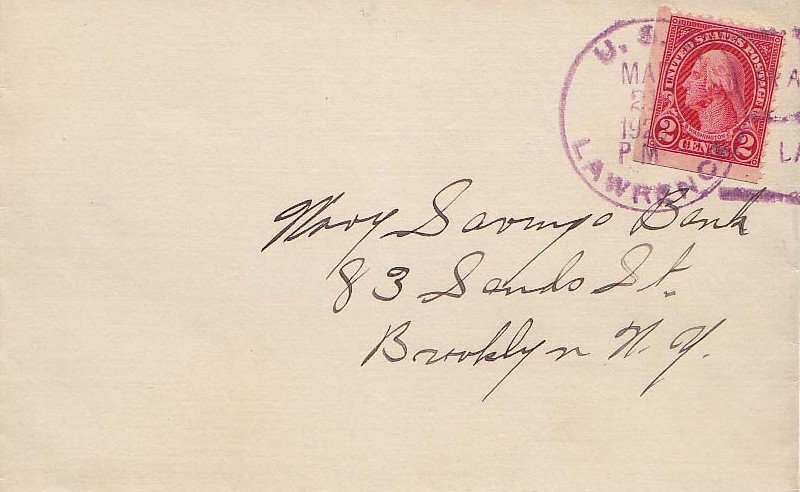 U. S.
MA
2
192
P M
LAWRENC
UNITED STATES POSTAGE
2 CENTS 2
LA
Navy Savings Bank
83 Sands St.
Brooklyn N. Y.